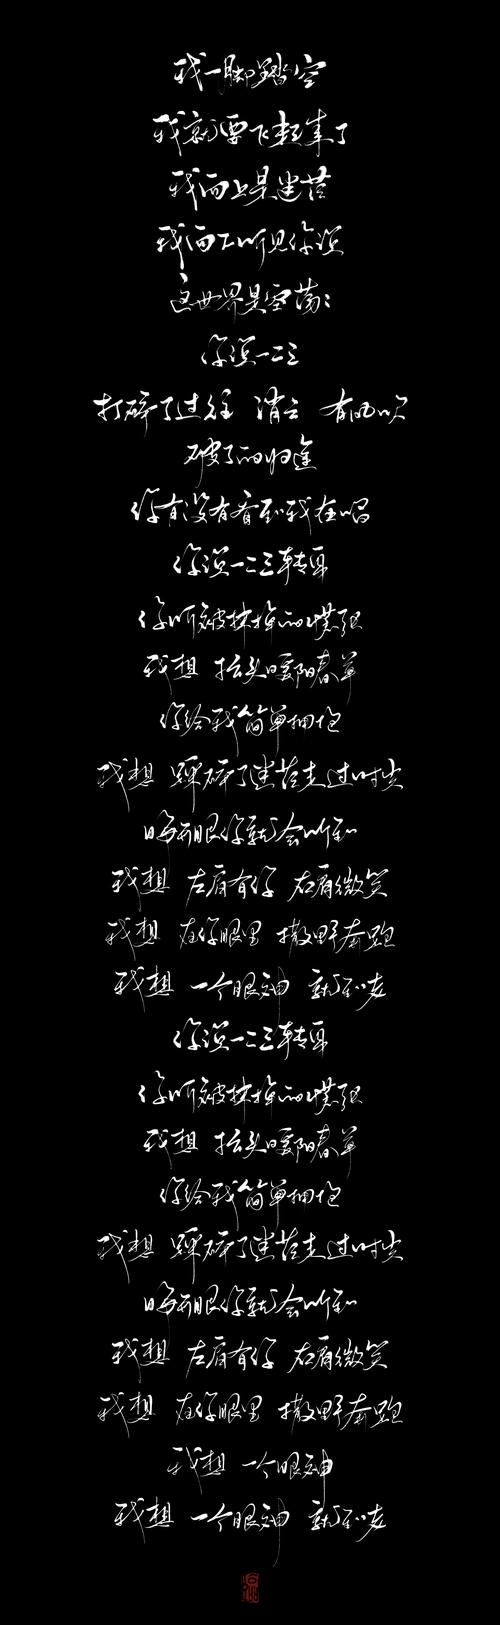 我一脚踏空
我就要飞起来了
我向上是迷茫
我向下听见你说
这世界是空荡荡
你说一二三
打碎了过往 消亡 有风吹
破了的归途
你有没有看到我在唱
你说一二三转身
你听被抹掉的慌张
我想 抬头暖阳春草
你给我简单拥抱
我想 踩碎了迷茫走过时光
睁开眼你就会听到
我想 左肩有你 右肩微笑
我想 在你眼里 撒野奔跑
我想 一个眼神 就到老
你说一二三转身
你听被抹掉的慌张
我想 抬头暖阳春草
你给我简单拥抱
我想 踩碎了迷茫走过时光
睁开眼你就会听到
我想 左肩有你 右肩微笑
我想 在你眼里 撒野奔跑
我想 一个眼神
我想 一个眼神 就到老